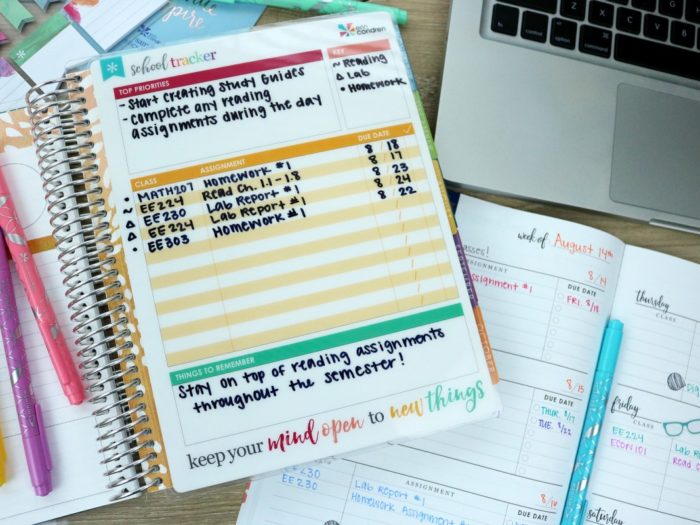 erin condren
school tracker
TOP PRIORITIES
- Start Creating Study Guides
- Complete any reading
assignments during the day
KEY
~ Reading
Δ Lab
• Homework
CLASS ASSIGNMENT DUE DATE ✓
• MATH207 Homework #1 8/18
~ EE224 Read Ch. 1.1-1.8 8/17
Δ EE230 Lab Report #1 8/23
Δ EE224 Lab Report #1 8/24
• EE303 Homework #1 8/22
THINGS TO REMEMBER
Stay on top of reading assignments
throughout the semester!
keep your mind open to new things
OCTOBER
week of August 14th
classes!
8/14
ASSIGNMENT DUE DATE
Assignment #1 FRI. 8/18
8/15
DUE DATE
THUR. 8/17
TUE. 8/22
8/16
ASSIGNMENT DUE DATE
EE230 Lab Report #1
EE230 Homework Assignment
thursday
CLASS
friday
CLASS
EE224 Lab
ECON101 Read
saturday